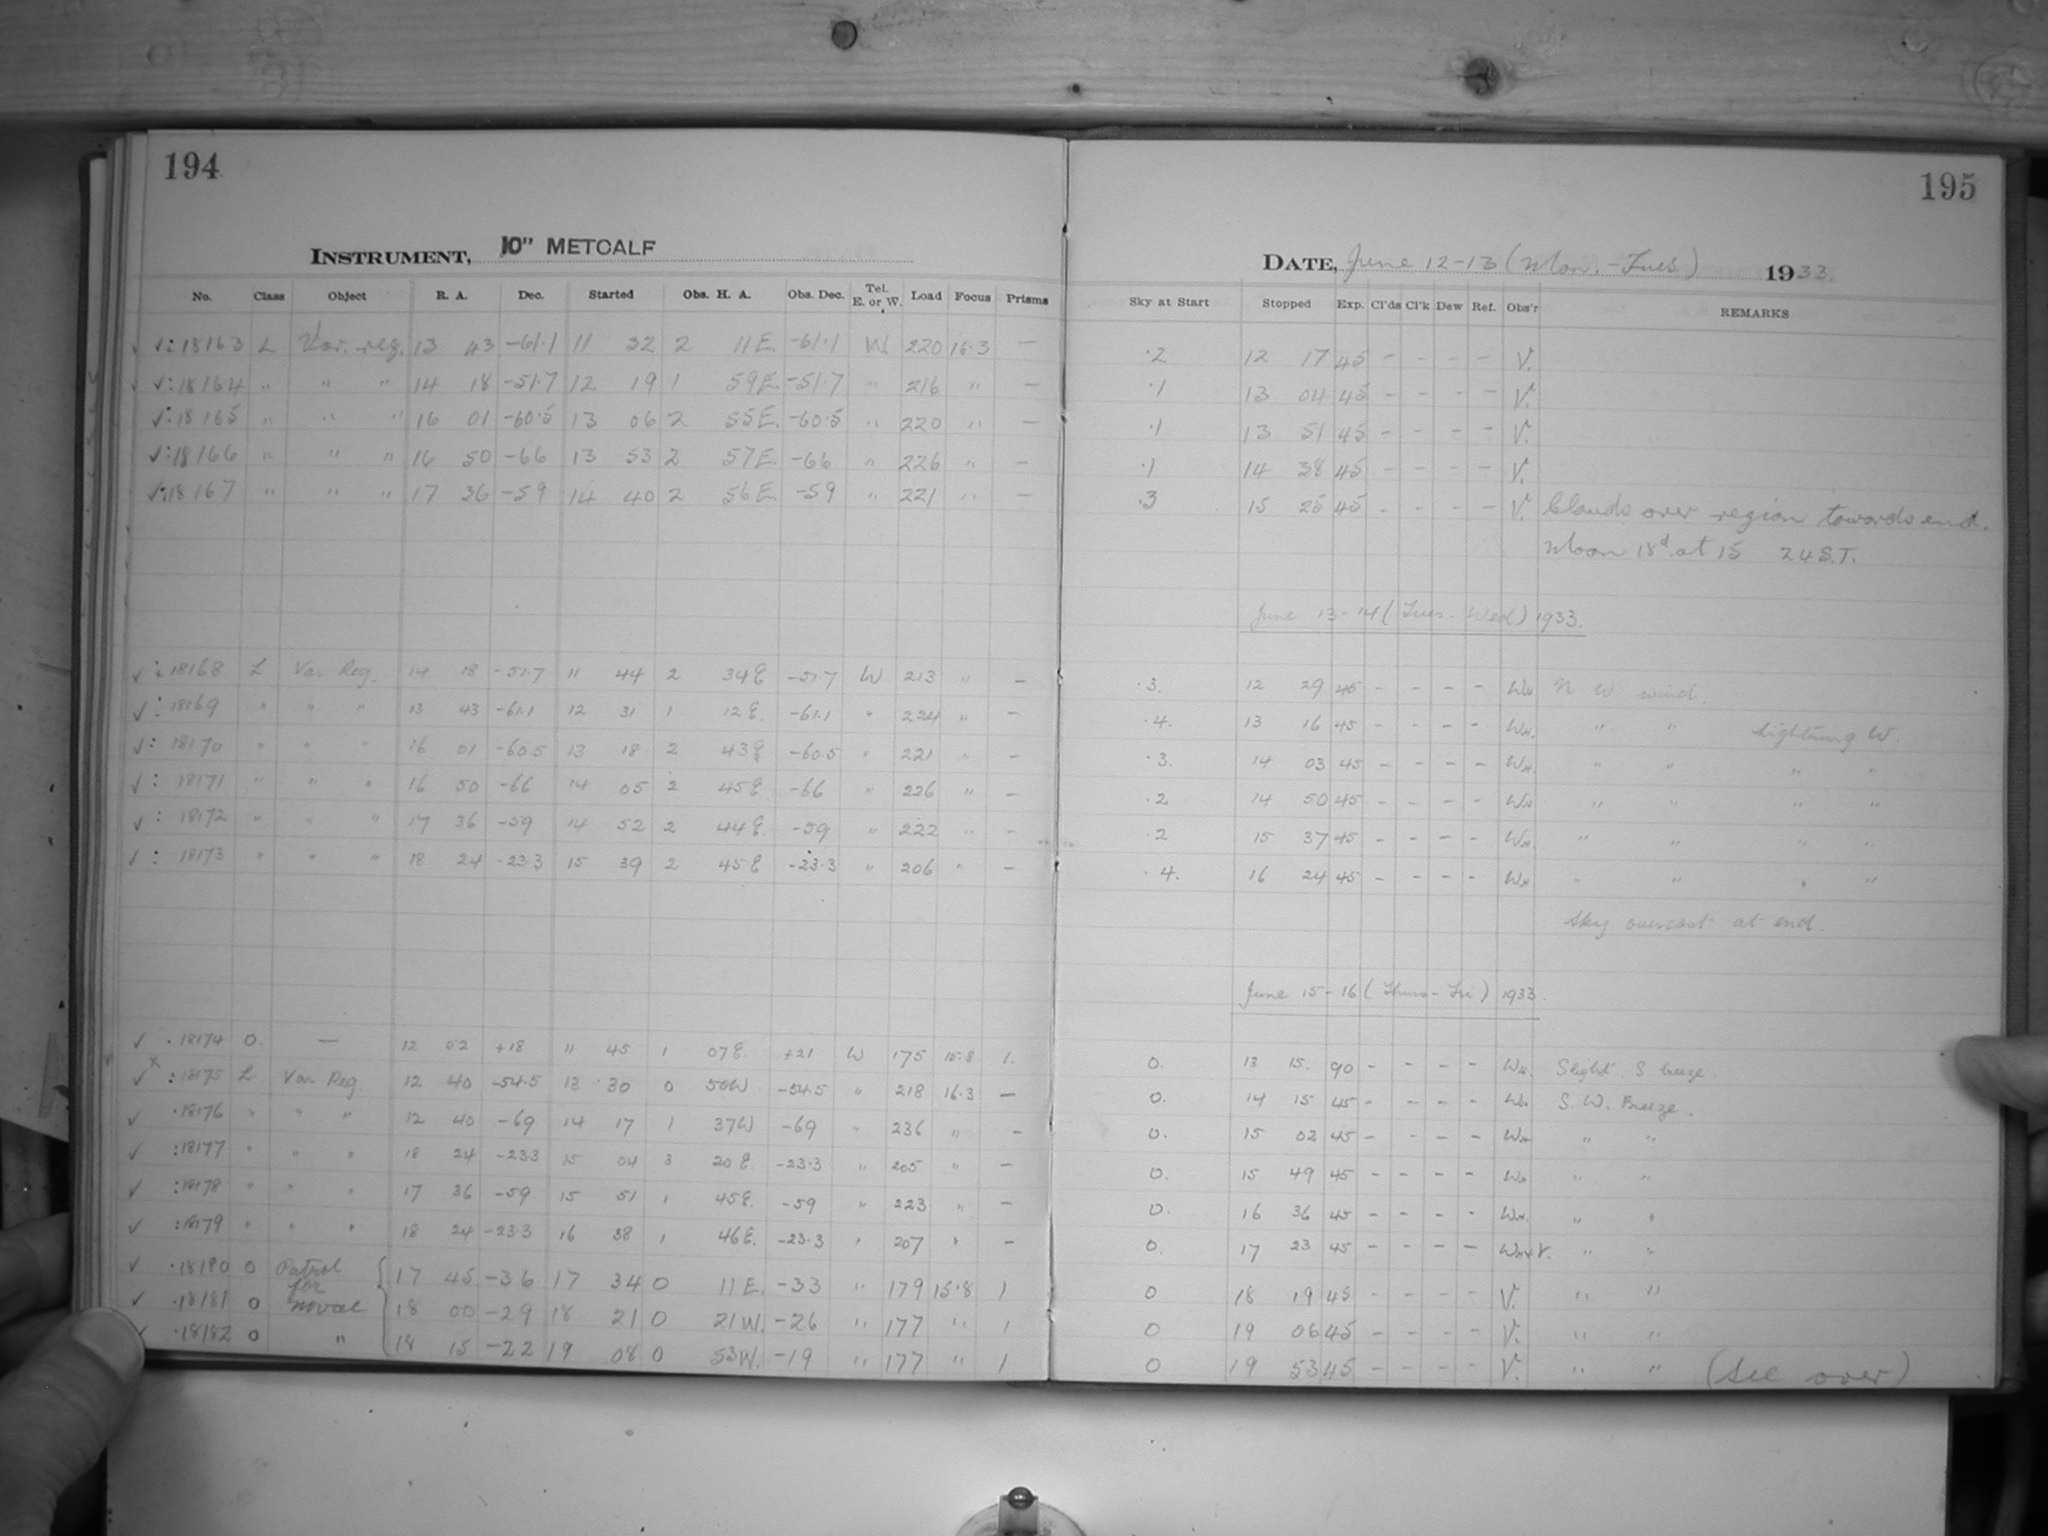 194
INSTRUMENT, 10" METCALF
No. Class Object R. A. Dec. Started Obs. H. A. Obs. Dec. Tel. E. or W. Load Focus Prisms
✓ : 18163 L Var. reg. 13 43 -61.1 11 32 2 11 E. -61.1 W. 220 16.3 —
✓ : 18164 " " " 14 18 -51.7 12 19 1 59 E. -51.7 " 216 " —
✓ : 18165 " " " 16 01 -60.5 13 06 2 55 E. -60.5 " 220 " —
✓ : 18166 " " " 16 50 -66 13 53 2 57 E. -66 " 226 " —
✓ : 18167 " " " 17 36 -59 14 40 2 56 E. -59 " 221 " —
✓ : 18168 L Var Reg. 14 18 -51.7 11 44 2 34 E -51.7 W 213 " —
✓ : 18169 " " " 13 43 -61.1 12 31 1 12 E. -61.1 " 224 " —
✓ : 18170 " " " 16 01 -60.5 13 18 2 43 E -60.5 " 221 " —
✓ : 18171 " " " 16 50 -66 14 05 2 45 E -66 " 226 " —
✓ : 18172 " " " 17 36 -59 14 52 2 44 E. -59 " 222 " —
✓ : 18173 " " " 18 24 -23.3 15 39 2 45 E -23.3 " 206 " —
✓ . 18174 O. — 12 02 +18 11 45 1 07 E. +21 W 175 15.8 1.
✓ x : 18175 L Var Reg. 12 40 -54.5 13 30 0 50 W -54.5 " 218 16.3 —
✓ . 18176 " " " 12 40 -69 14 17 1 37 W -69 " 236 " —
✓ : 18177 " " " 18 24 -23.3 15 04 3 20 E. -23.3 " 205 " —
✓ : 18178 " " " 17 36 -59 15 51 1 45 E. -59 " 223 " —
✓ : 18179 " " " 18 24 -23.3 16 38 1 46 E. -23.3 " 207 " —
✓ . 18180 O Patrol 17 45 -36 17 34 0 11 E. -33 " 179 15.8 1
for
✓ . 18181 O novae 18 00 -29 18 21 0 21 W. -26 " 177 " 1
✓ . 18182 O " 18 15 -22 19 08 0 53 W. -19 " 177 " 1
195
DATE, June 12-13 (Mon. - Tues.) 1933.
Sky at Start Stopped Exp. Cl'ds Cl'k Dew Ref. Obs'r REMARKS
.2 12 17 45 - - - - V.
.1 13 04 45 - - - - V.
.1 13 51 45 - - - - V.
.1 14 38 45 - - - - V.
.3 15 25 45 - - - - V. Clouds over region towards end.
Moon 18d at 15 24 S.T.
June 13-14 (Tues. - Wed) 1933.
.3. 12 29 45 - - - - WH N W wind.
.4. 13 16 45 - - - - WH. " " Lightning W.
.3. 14 03 45 - - - - WH. " " " "
.2 14 50 45 - - - - WH " " " "
.2 15 37 45 - - - - WH " " " "
.4. 16 24 45 - - - - WH " " " "
Sky overcast at end.
June 15-16 (Thurs - Fri) 1933.
0. 13 15. 90 - - - - WH. Slight S. breeze.
0. 14 15 45 - - - - WH. S. W. Breeze.
0. 15 02 45 - - - - WH " "
0. 15 49 45 - - - - WH " "
0. 16 36 45 - - - - WH. " "
0. 17 23 45 - - - - WH + V. " "
0 18 19 45 - - - - V. " "
0 19 06 45 - - - - V. " "
0 19 53 45 - - - - V. " " (See over)